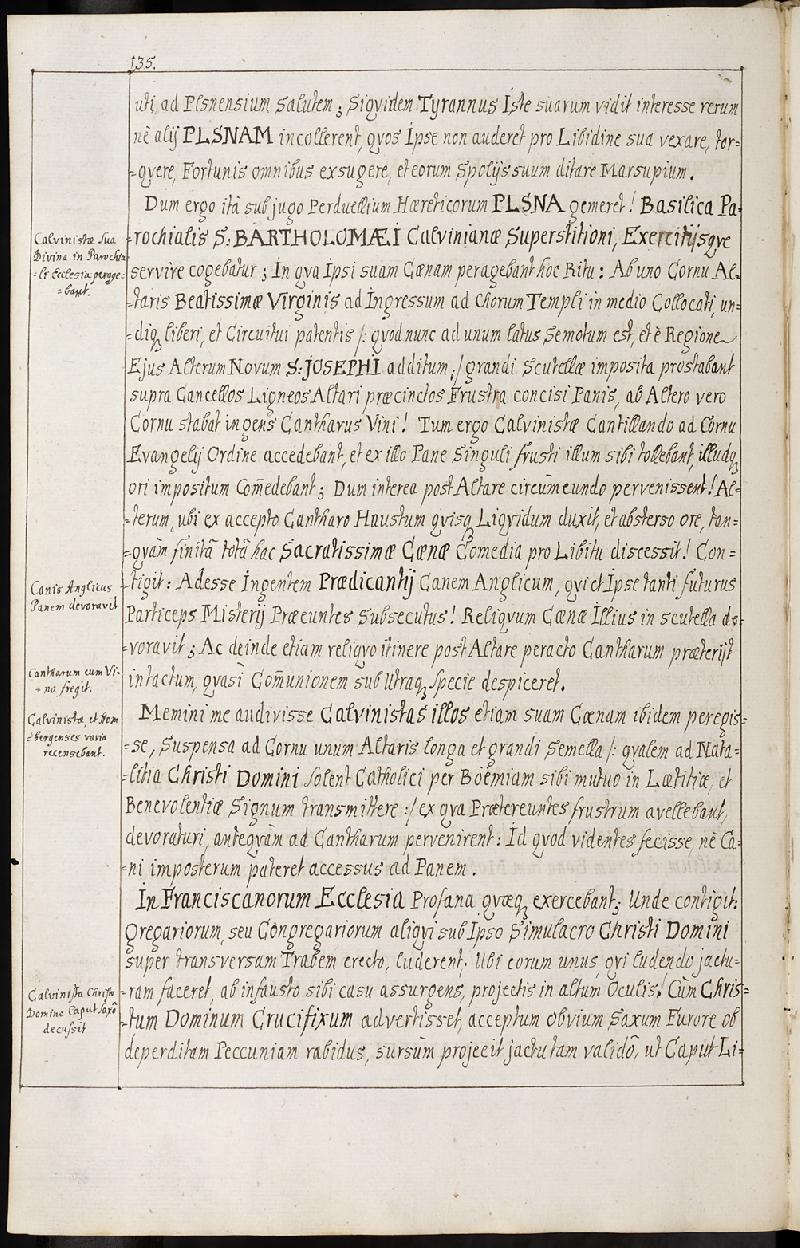 135.
uti, ad Plsnensium Salutem; Siqvidem Tyrannus Iste suarum vidit interesse rerum
nè alij PLSNAM incollerent, qvos Ipse non auderet pro Libidine sua vexare, tor=
=qvere, Fortunis omnibus exsugere, et eorum Spolijs suum ditare Marsupium.
Dum ergo ità sub jugo Perduellium Hæreticorum PLSNA gemeret! Basilica Pa=
=rochialis S: BARTHOLOMÆI Calvinianæ Superstitioni, Exercitijsqve
servire cogebatur; In qva Ipsi suam Cœnam peragebant hoc Ritu: Ab uno Cornu Al=
=taris Beatissimæ Virginis ad Ingressum ad Chorum Templi in medio Collocati, un=
=diq liberi, et Circuitui patentis /: qvod nunc ad unum latus Semotum est, et è Regione
Ejus Alterum Novum S: JOSEPHI additum :/ grandi Scutellæ imposita prostabant
supra Cancellos Ligneos Altari præcinctos Frustra concisi Panis, ab Altero vero
Cornu stabat ingens Cantharus Vini! Tum ergo Calvinistæ Cantillando ad Cornu
Evangelij Ordine accedebant, et ex illo Pane Singuli frusti illum sibi tollebant, illudq
ori impositum Com̃edebant; Dum interea post Altare circumeundo pervenissent! Al=
=terum, ubi ex accepto Cantharo Haustum qvisq Liqvidum duxit, et absterso ore, tan=
=qvam finitâ totâ hac Sacratissimæ Cœnæ Comedia pro Libitu discessit! Con=
=tigit: Adesse Ingentem Prædicantij Canem Anglicum, qvi et Ipse tanti futurus
Particeps Misterij Præeuntes Subsecutus! Reliqvum Cœnæ Illius in scutella de=
=voravit; Ac deinde etiam reliqvo itinere post Altare peracto Cantharum præterijt
intactum, qvasi Com̃unionem sub Utraq Specie despiceret.
Memini me audivisse Calvinistas illos etiam suam Cœnam ibidem peregis=
=se, Suspensa ad Cornu unum Altaris longa et grandi Semella /: qvalem ad Nata=
=litia Christi Domini Solent Catholici per Boëmiam sibi mutuo in Lætitiæ, et
Benevolentiæ Signum transmittere :/ ex qva Prætereuntes frustrum avellebant,
devoraturi, anteqvam ad Cantharum pervenirent: Id qvod videntes fecisse, nè Ca=
=ni imposterum pateret accessus ad Panem.
In Franciscanorum Ecclesia Profana qvæq exercebant; Unde contigit:
Gregariorum, seu Congregariorum aliqvi sub Ipso Simulacro Christi Domini
super transversam Trabem erecto, luderent. Ubi eorum unus, qvi ludendo jactu=
=ram faceret, ab infausto sibi casu assurgens, projectis in altum Oculis! Cùm Chris=
=tum Dominum Crucifixum advertisset, acceptum obvium Saxum Furore ob
deperditam Peccuniam rabidus, sursùm projecit jactu tam validô, ut Caput Li=
Calvinistæ Sua
Divina in Parochia=
=li Ecclesia perage=
=bant.
Canis Anglicus
Panem devoravit
Cantharum cum Vi=
=no fregit.
Calvinistæ, et
=bergenses varia
recensebant.
Calvinista Christi
Domini Caput saxô
decussit